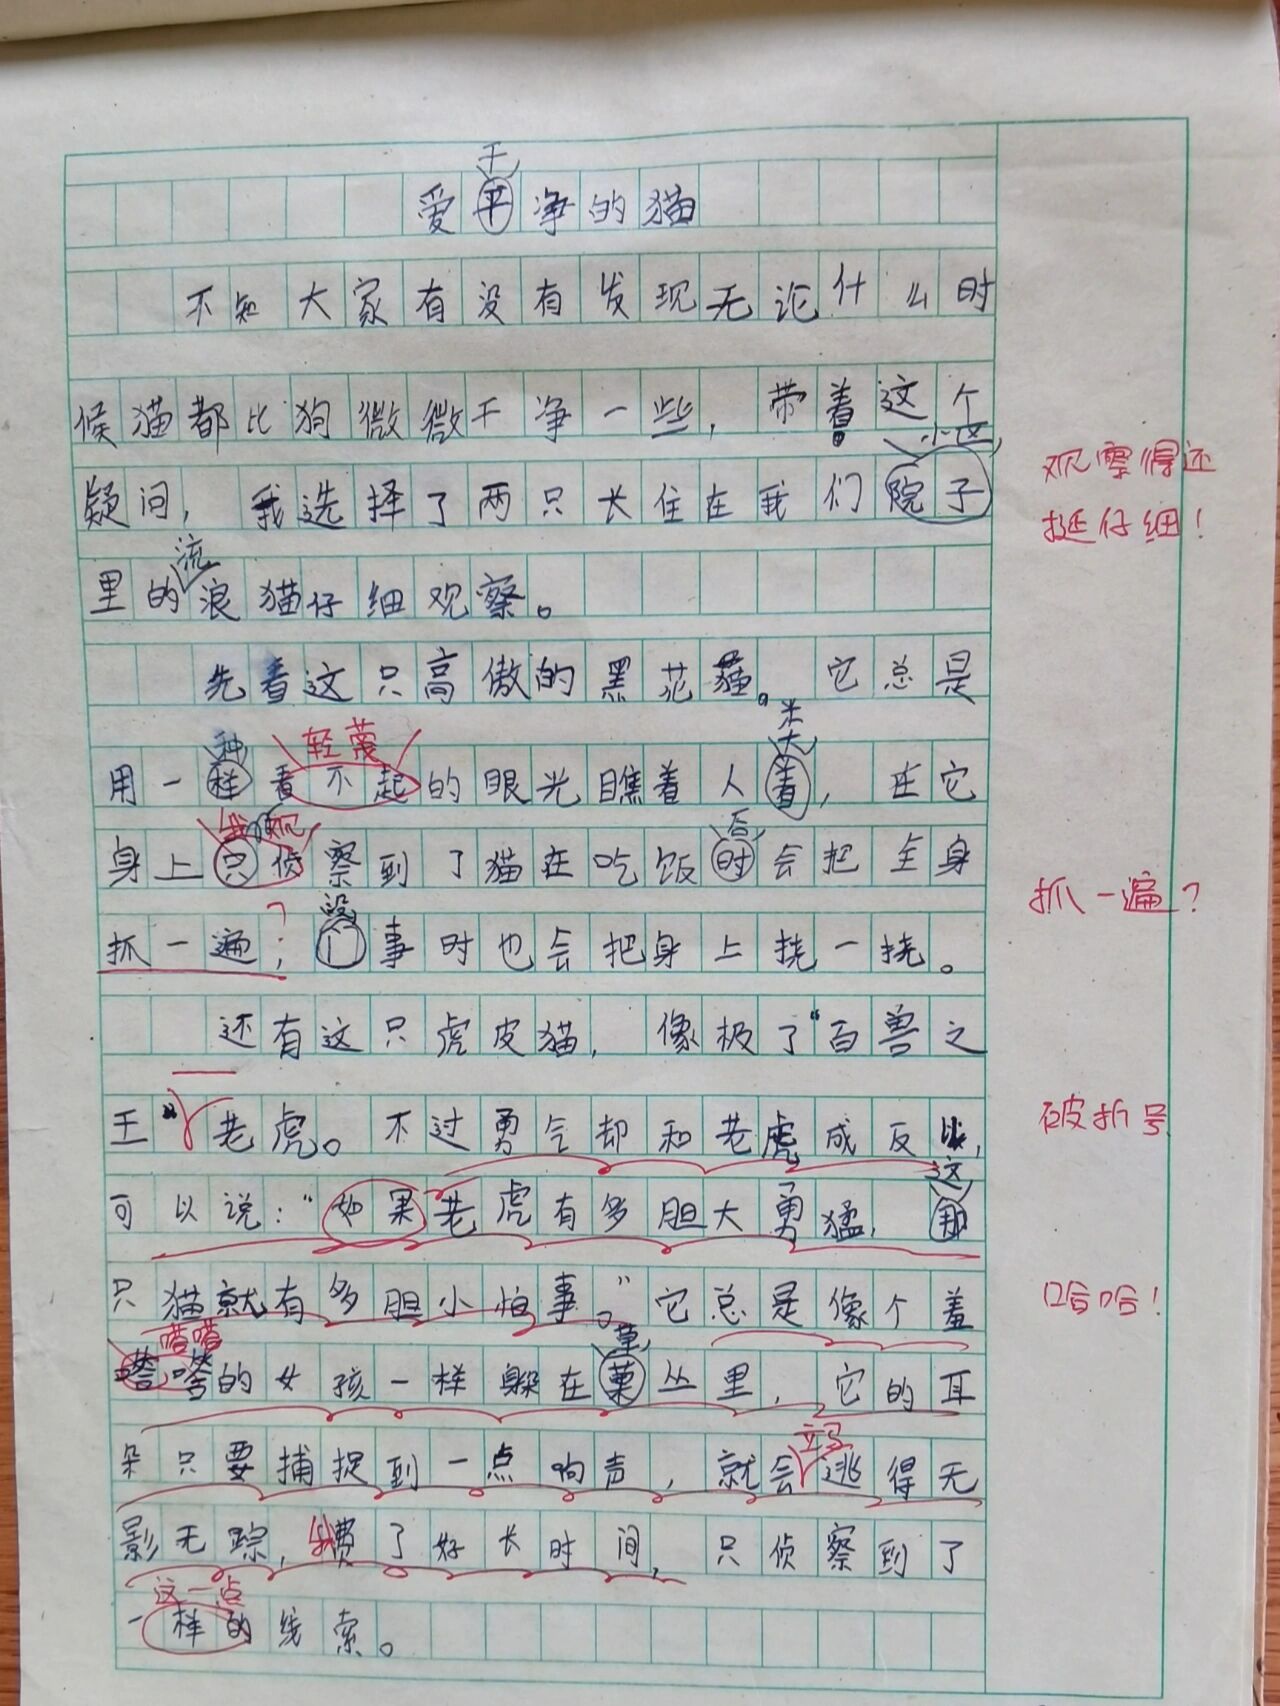 干
爱平净的猫
不知大家有没有发现无论什么时
候猫都比狗微微干净一些，带着这个
小区
疑问，我选择了两只长住在我们院子
观察得还
挺仔细！
流
里的浪猫仔细观察。
先看这只高傲的黑花猫。它总是
种 轻蔑
用一样看不起的眼光瞧着人着，在它
我观 后
身上只侦察到了猫在吃饭时会把全身
抓一遍？
没
抓一遍；门事时也会把身上挠一挠。
还有这只虎皮猫，像极了“百兽之
王”老虎。不过勇气却和老虎成反比，
破折号
这
可以说：“如果老虎有多胆大勇猛，那
只猫就有多胆小怕事。”它总是像个羞
哈哈！
嗒嗒
嗒嗒的女孩一样躲在草丛里，它的耳
立马
朵只要捕捉到一点响声，就会逃得无
影无踪，我费了好长时间，只侦察到了
这一点
一样的线索。